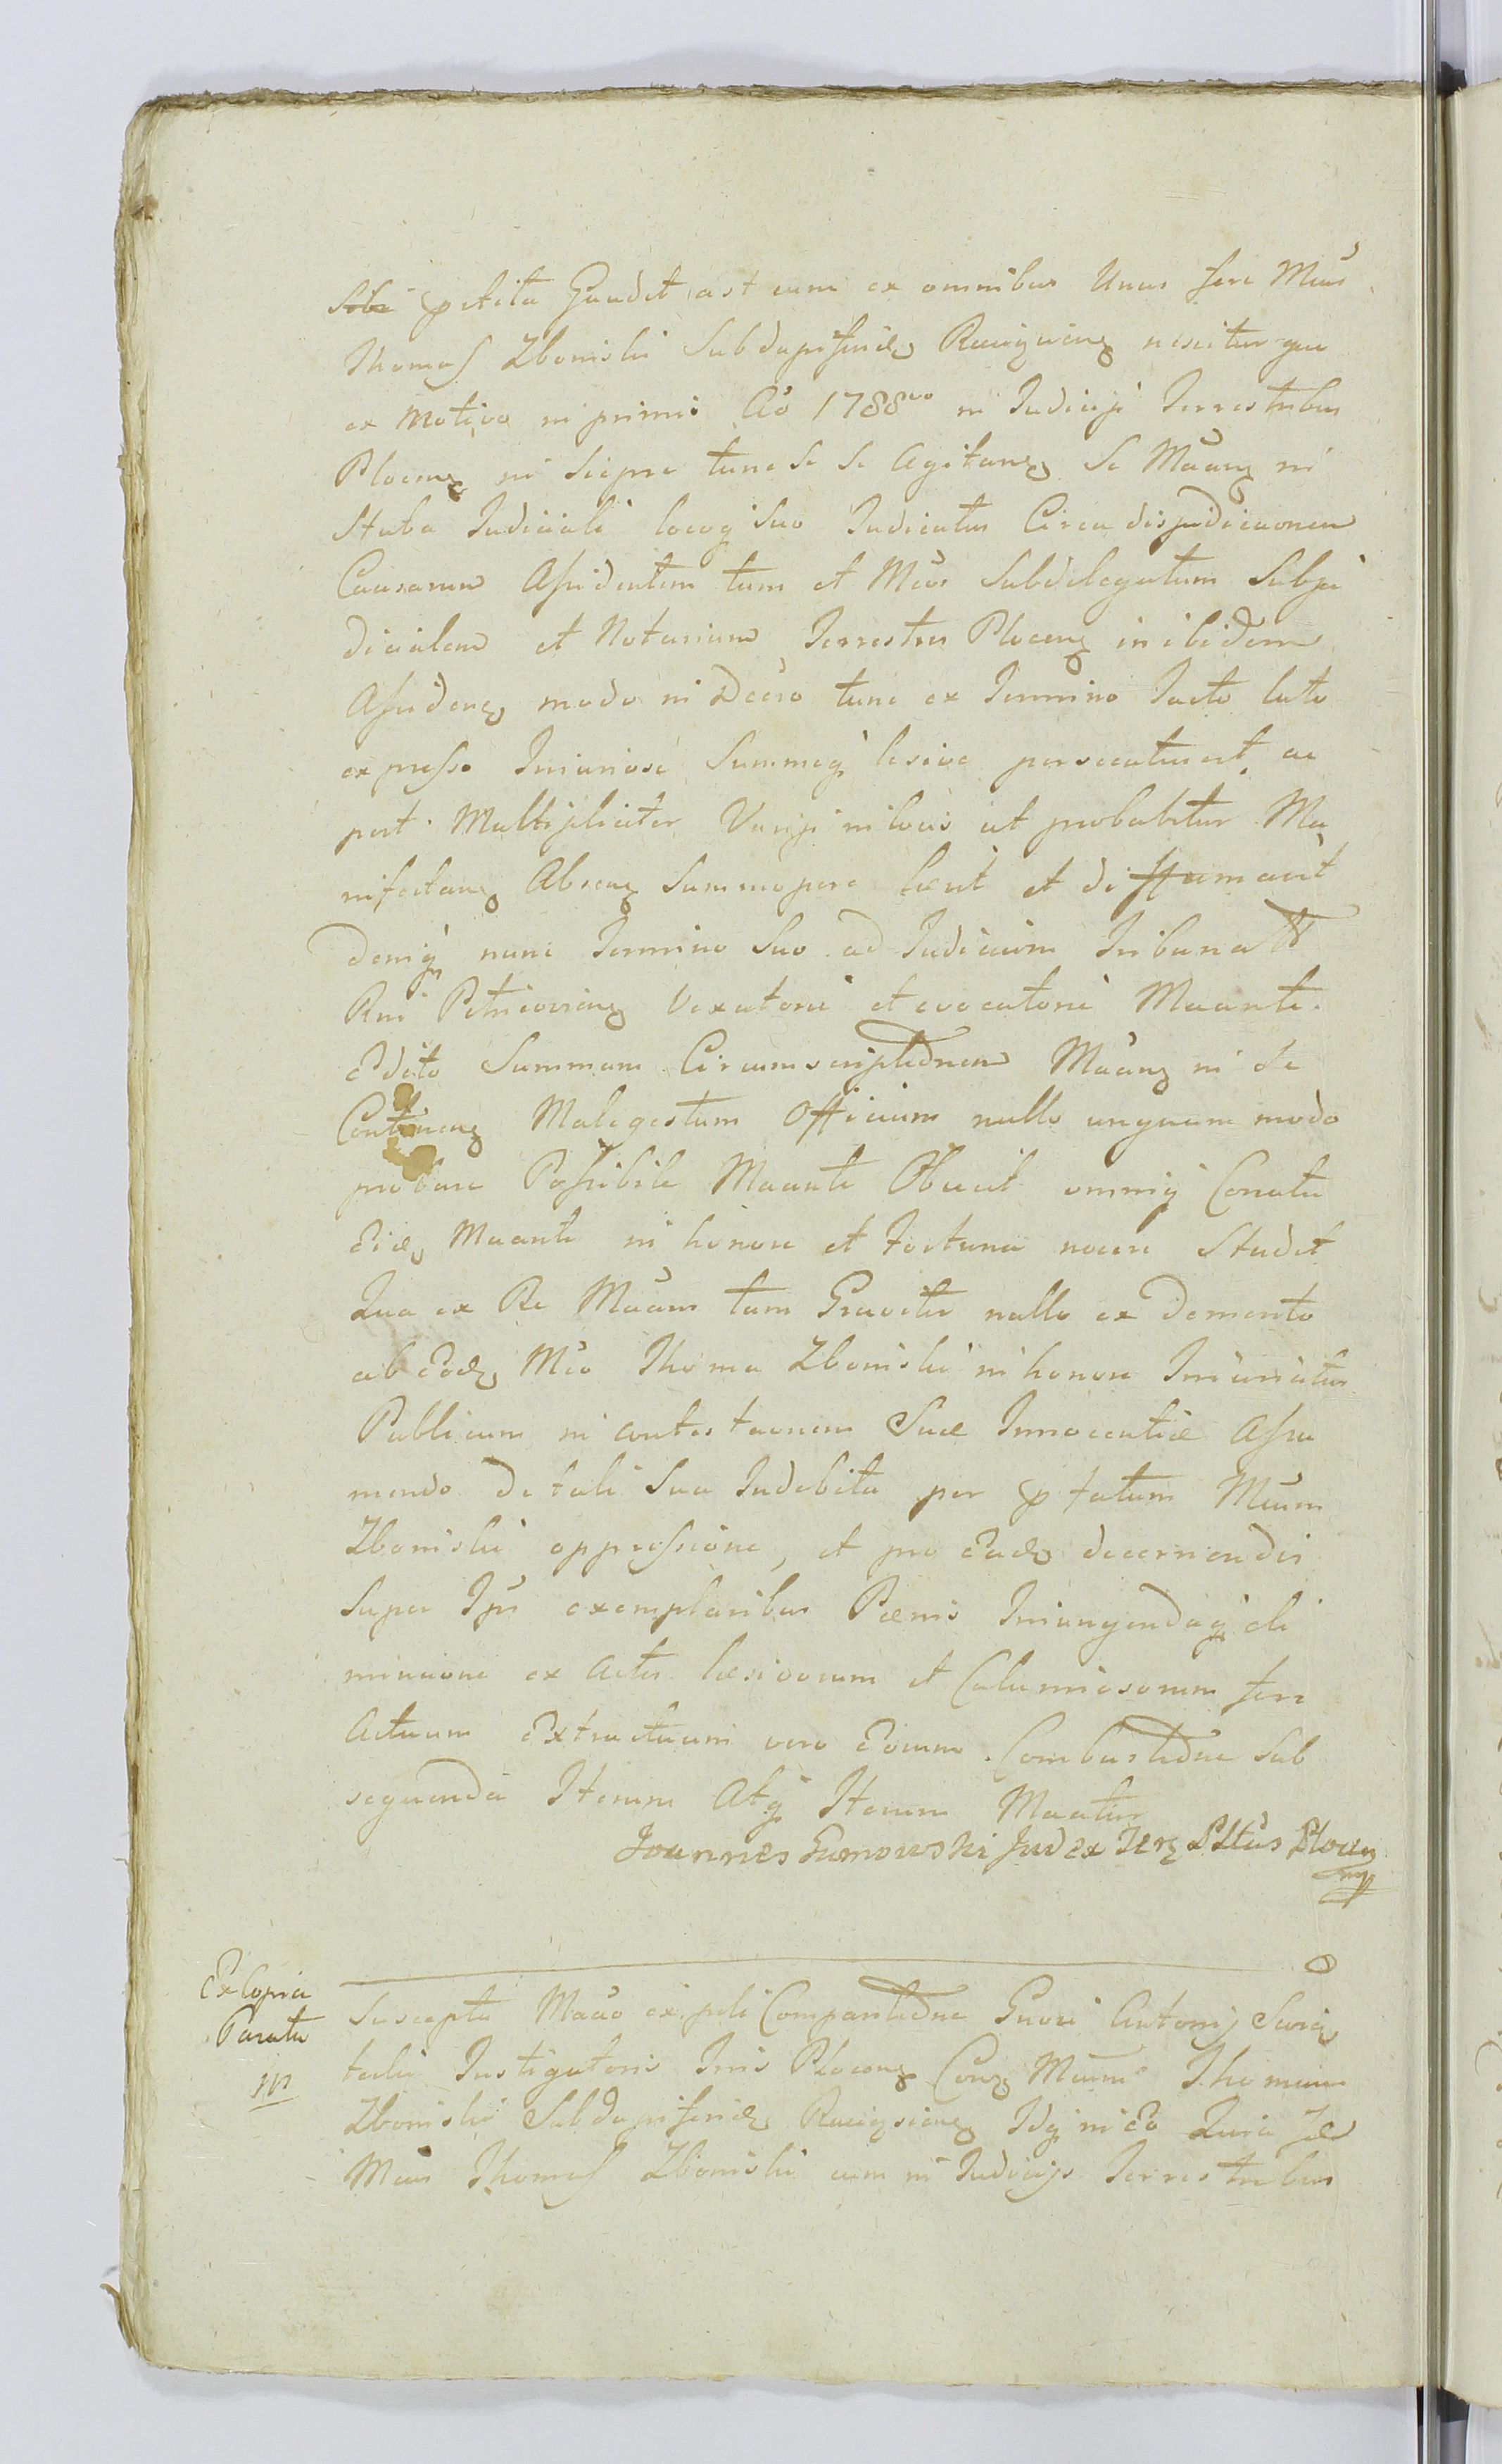 Sibi petita Gaudet ast cum ex omnibus Unus fere Mcus
Thomas Zboniski Subdapiferid Raciązens nescitur quo
ex Motivo in primis Aõ 1788vo in Judicijs Terrestribus
Plocens in Sierpc tunc se se Agitans Se Maans in
Stuba Judiciali locoq Suo Judicatus Circa disjudicaonem
Causarum Assidentem tum et Mcos Subdelegatum Subju
dicialem et Notarium Terrestres Plocens inibidem
Assidens modo in Decro tunc ex Termino Tacto lato
expresso Injuriose Summeq lesive persecutus est, ac
post Multipliciter Varijs in locis ut probabitur Ma
nifestans Absens Summopere læsit et diffamavit
deniq nunc Termino Suo ad Judicium Tribunalis
Rni Petricoviens Vexatorie et evocatorie Maante
Edito Summam Circumscriptionem Maans in Se
Continens Malegestum Officium nullo unquam modo
probare Possibile Maante Objecit omniq Conatu
Eid Maante in honore et fortuna nocere Studet
Qua ex Re Maans tam Graviter nullo ex Demerito
ab Eod Mco Thoma Zboniski in honore Injuriatus
Publicum in contestaonem Suæ Innocentiæ Assu
mendo de tali Sua Indebita per ptatum Mcum
Zboniski oppressione, et pro Ead decernendis
Super Ips exemplaribus Pœnis Injungendaq eli
minaone ex Actis læsivorum et Calumniosorum fere
Actuum Extractuum vero Eorum Combustione Sub
sequenda Iterum Atq Iterum Maatur
Joannes Gumowski Judex Terr Pltus Plocens
mp
Ex Copia
Parata
Suscepta Maao ex psli Comparitione Gnosi Antonij
talis Instigatoris Juris Plocens Cons Mcum Thomam
Zboniski Subdapiferid Raciązsiens Idq in Eo Quia Idem
Mcus Thomas Zboniski cum in Judicijs Terrestribus